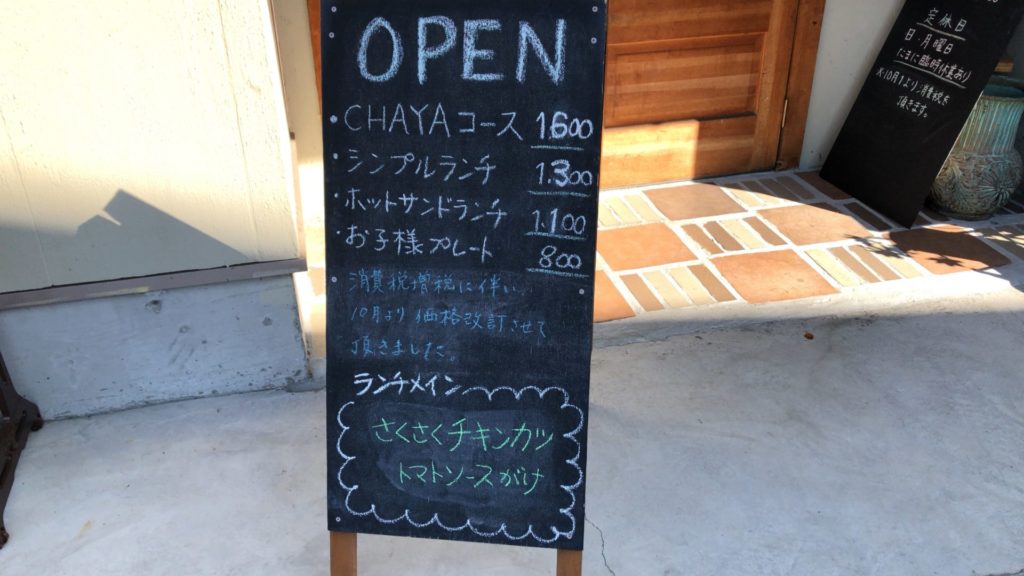 OPEN
・CHAYAコース 1.600
・シンプルランチ 1.300
・ホットサンドランチ 1.100
・お子様プレート 800
消費税増税に伴い
10月より価格改訂させて
頂きました。
ランチメイン
さくさくチキンカツ
トマトソースがけ
定休日
日月曜日
たまに臨時休業あり
※10月1より消費税を
頂きます。